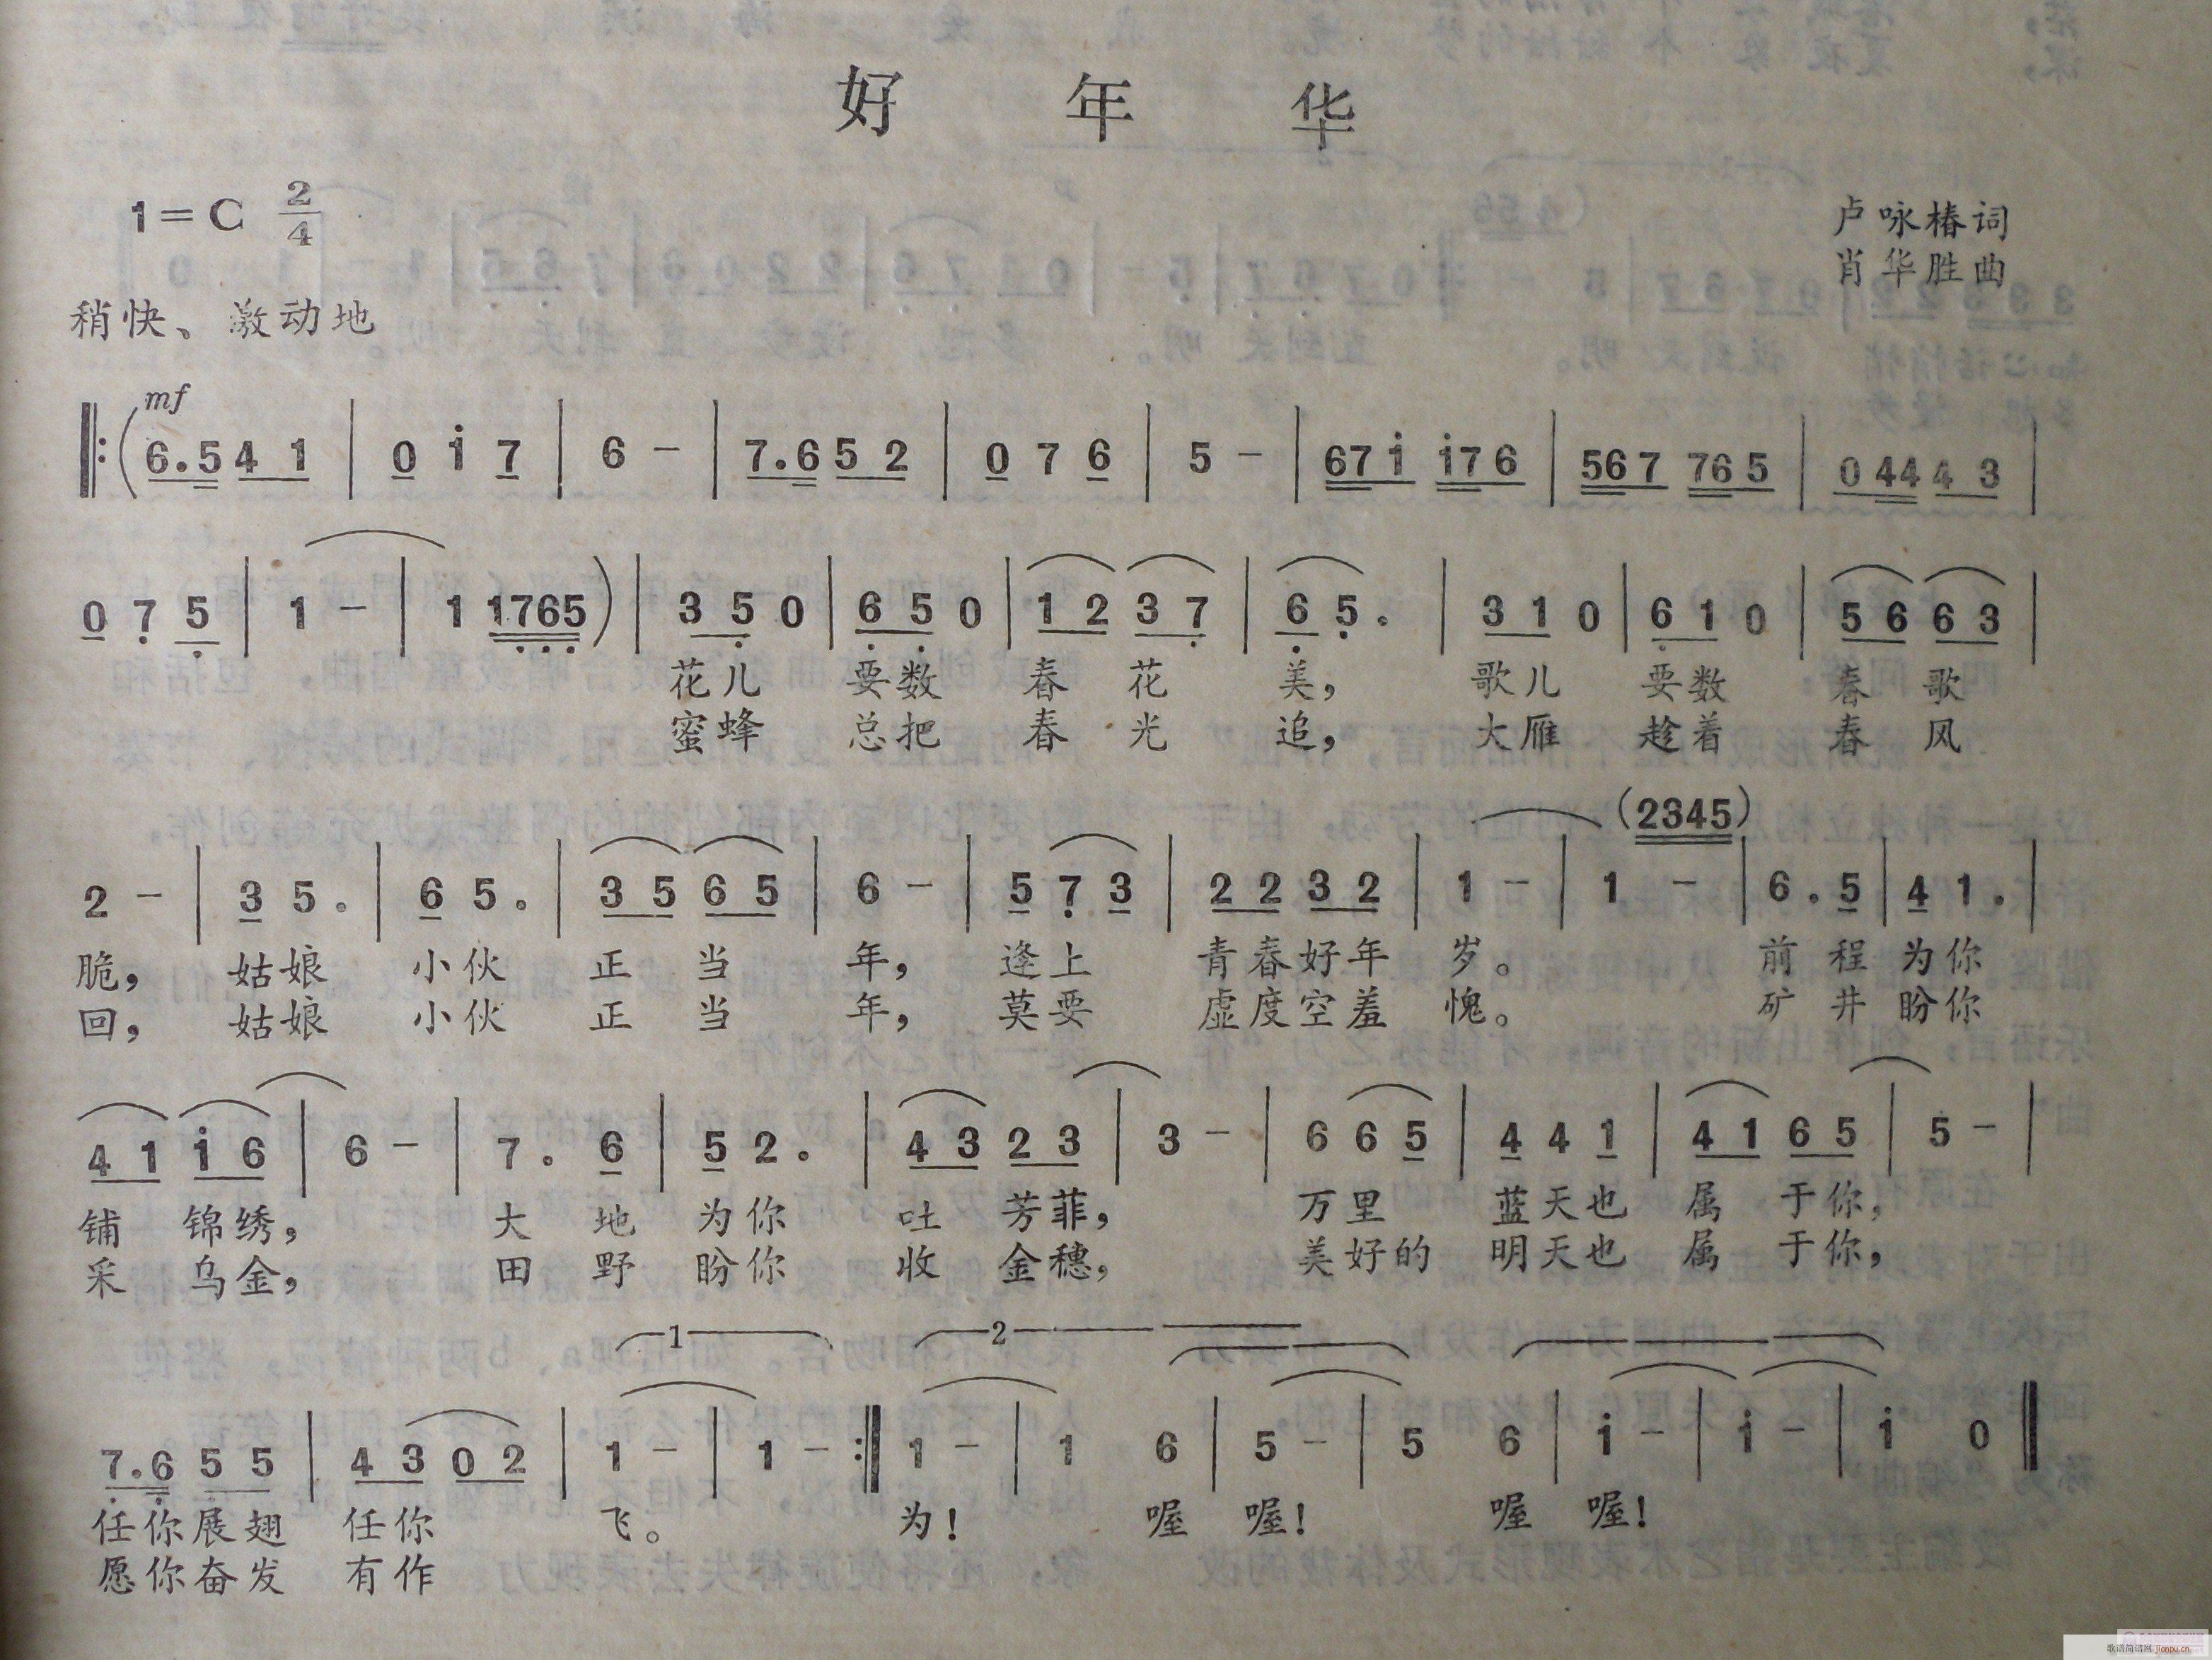 好年华
1=C 2/4
卢咏椿词
肖华胜曲
稍快、激动地
mf
(6.5 4 1 | 0 i 7 | 6 - | 7.6 5 2 | 0 7 6 | 5 - | 67 i i7 6 | 56 7 76 5 | 0 44 4 3 |
0 7 5 | 1 - | 1 1765) | 3 5 0 | 6 5 0 | 1 2 3 7 | 6 5. | 3 1 0 | 6 1 0 | 5 6 6 3 |
花儿 要数 春 花 美， 歌儿 要数 春 歌
蜜蜂 总把 春 光 追， 大雁 趁着 春 风
(2345)
2 - | 3 5. | 6 5. | 3 5 6 5 | 6 - | 5 7 3 | 2 2 3 2 | 1 - | 1 - | 6. 5 | 4 1. |
脆， 姑娘 小伙 正 当 年， 逢上 青春好年 岁。 前 程 为你
回， 姑娘 小伙 正 当 年， 莫要 虚度空羞 愧。 矿 井 盼你
4 1 i 6 | 6 - | 7. 6 | 5 2. | 4 3 2 3 | 3 - | 6 6 5 | 4 4 1 | 4 1 6 5 | 5 - |
铺 锦绣， 大 地 为你 吐 芳菲， 万里 蓝天也 属 于你，
采 乌金， 田 野 盼你 收 金穗， 美好的 明天也 属 于你，
1 2
7.6 5 5 | 4 3 0 2 | 1 - | 1 - :| 1 - | 1 6 | 5 - | 5 6 | i - | i - | i 0 |
任你展翅 任你 飞。 为！ 喔 喔！ 喔 喔！
愿你奋发 有作
歌谱简谱网 jianpu.cn